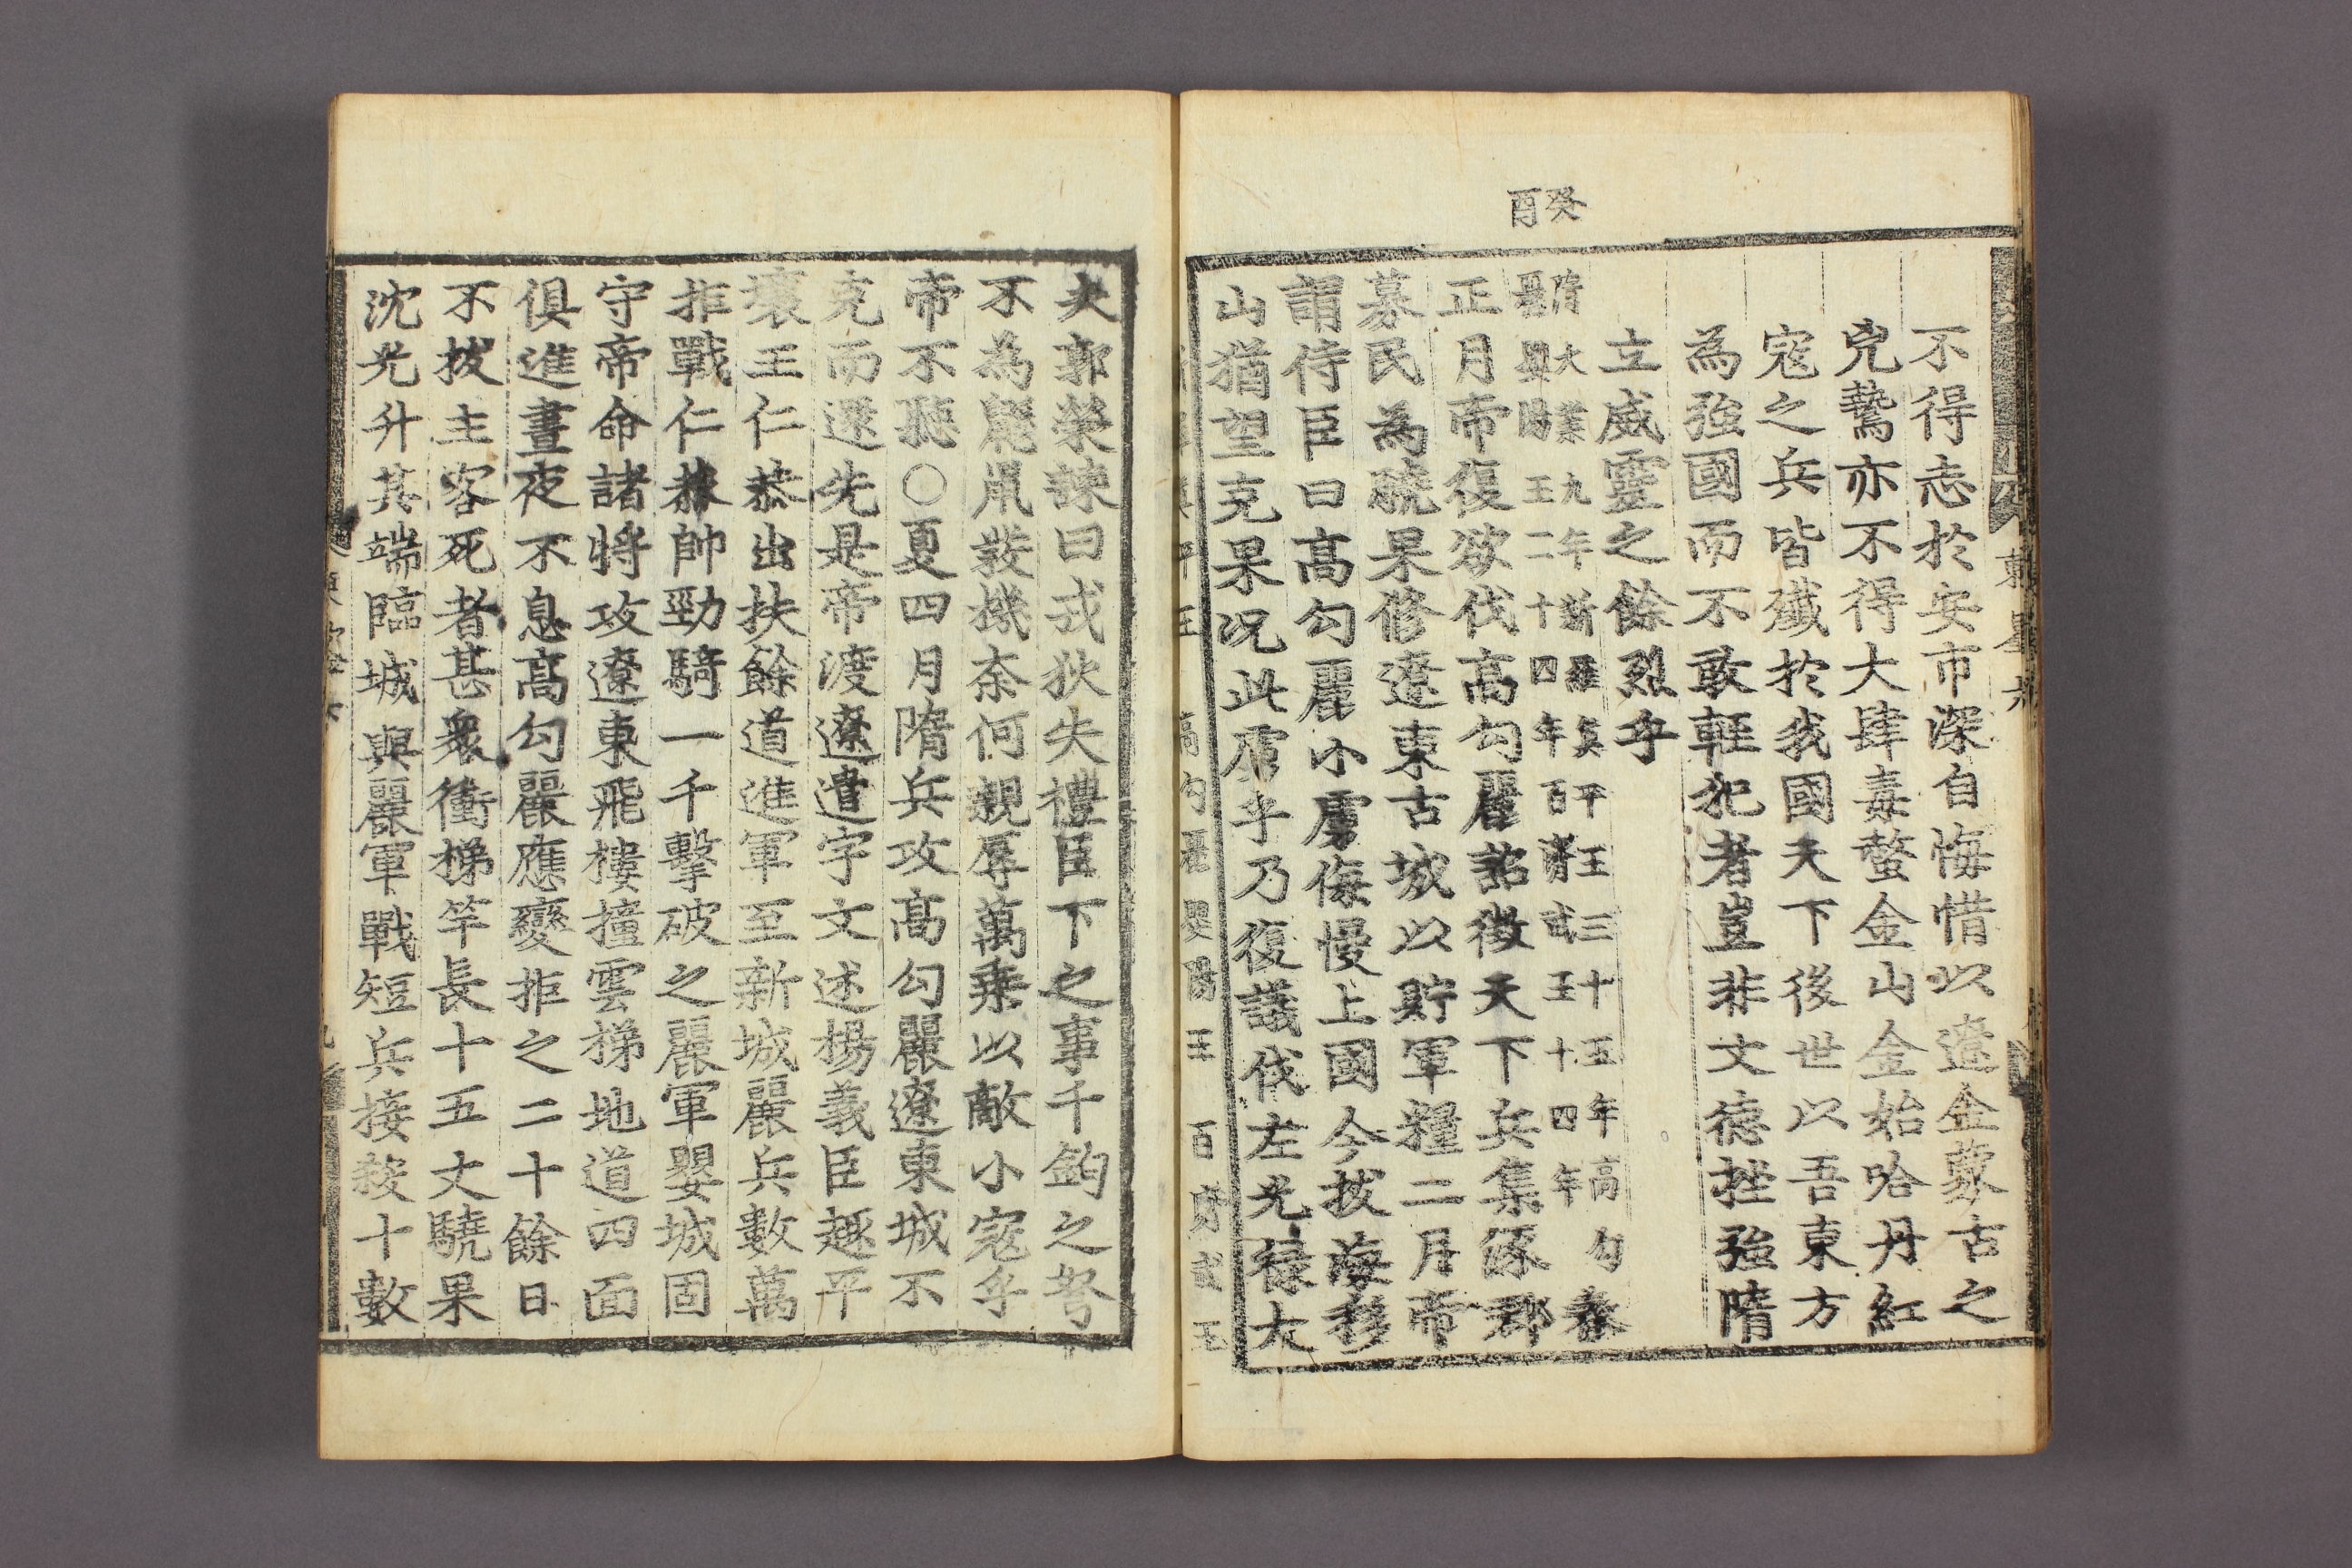 癸酉
不得志於安市深自悔惜以遼金蒙古之
兇驁亦不得大肆毒螫金山金始哈丹紅
寇之兵皆殲於我國天下後世以吾東方
為強國而不敢輕犯者豈非文德挫強隋
立威靈之餘烈乎
隋大業九年新羅眞平王三十五年高句麗嬰陽王二十四年百濟武王十四年春
正月帝復欲伐高勾麗詔徴天下兵集涿郡
募民為驍果修遼東古城以貯軍糧二月帝
謂侍臣曰高勾麗小虜侮慢上國今拔海移
山猶望克果況此虜乎乃復議伐左光祿大
新羅眞平王 高勾麗嬰陽王 百濟武王
夫郭榮諫曰戎狄失禮臣下之事千鈞之弩
不為鼷鼠發機奈何親辱萬乗以敵小寇乎
帝不聽○夏四月隋兵攻高勾麗遼東城不
克而還先是帝渡遼遣字文述楊義臣趣平
壤王仁恭出扶餘道進軍至新城麗兵數萬
拒戰仁恭帥勁騎一千擊破之麗軍嬰城固
守帝命諸將攻遼東飛樓撞雲梯地道四面
俱進晝夜不息高勾麗應變拒之二十餘日
不拔主客死者甚衆衝梯竿長十五丈驍果
沈光升其端臨城與麗軍戰短兵接殺十數